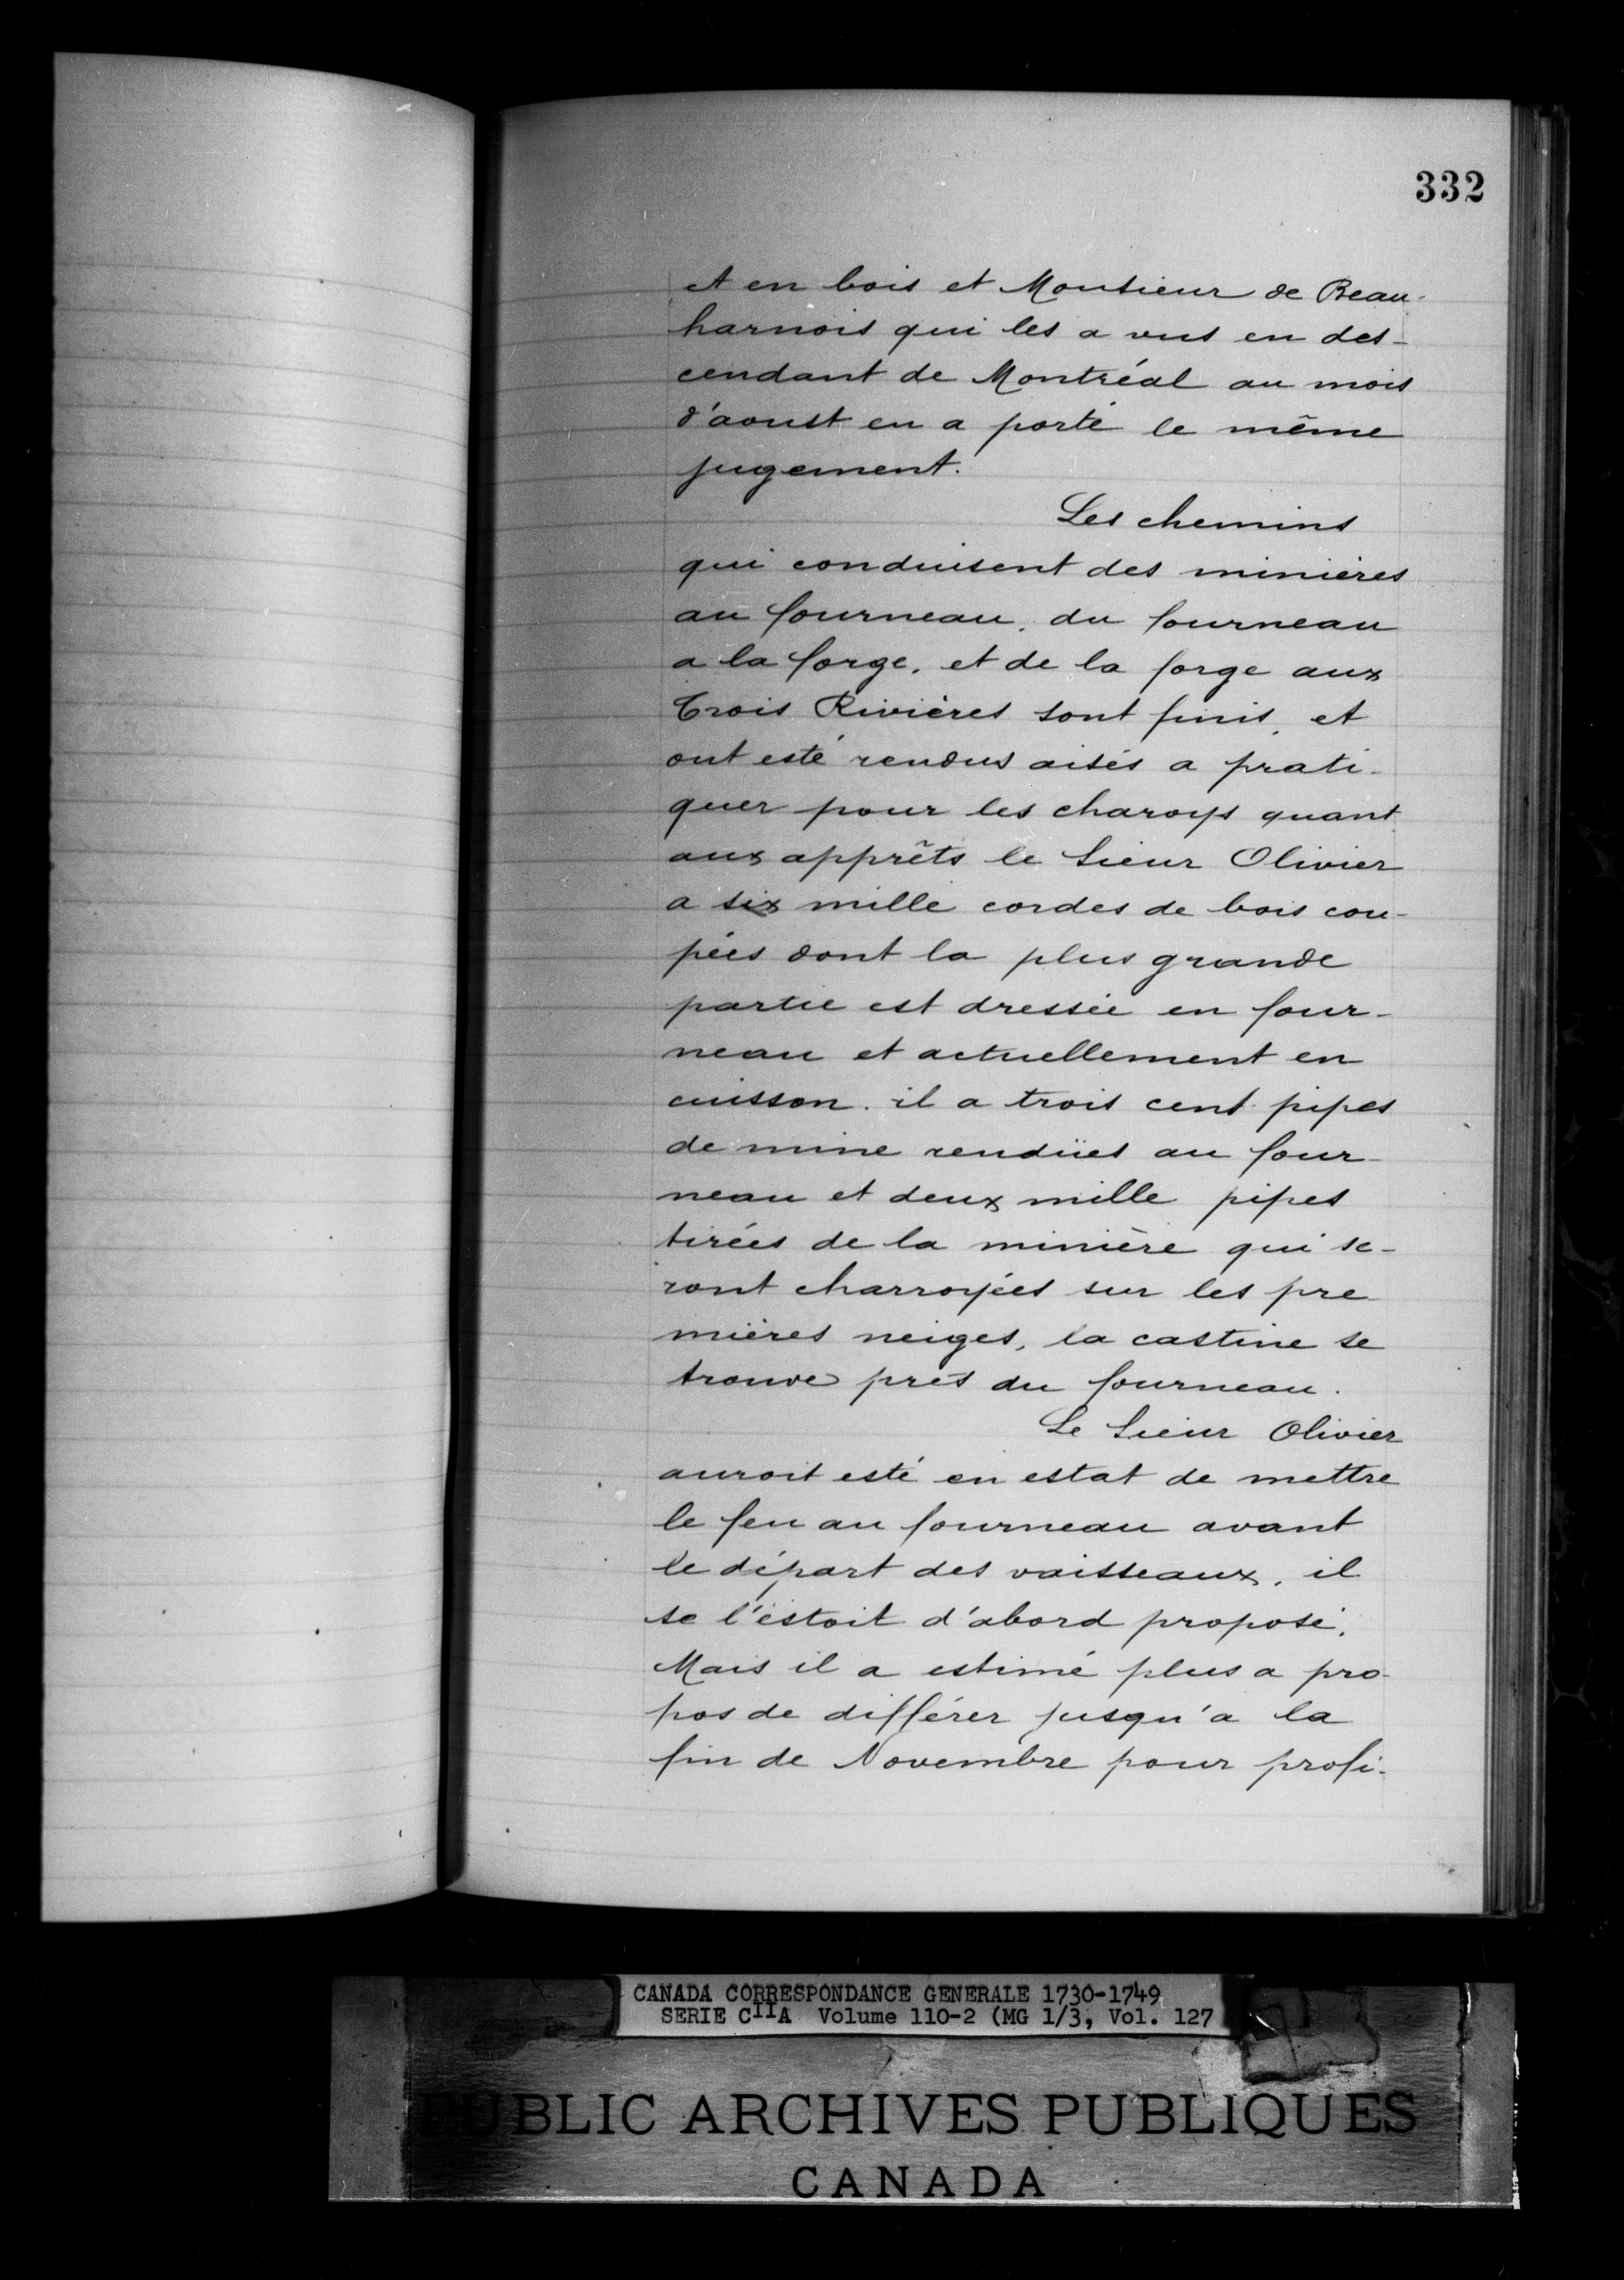 332
et en bois et Monsieur de Beau-
harnois qui les a vus en des-
cendant de Montréal au mois
d'aoust en a porté le même
jugement.
Les chemins
qui conduisent des minières
au fourneau, du fourneau
a la forge, et de la forge aux
Trois Rivières sont finis, et
ont esté rendus aisés a prati-
quer pour les charoys quant
aux apprêts le Sieur Olivier
a six mille cordes de bois cou-
pées dont la plus grande
partie est dressée en four-
neau et actuellement en
cuisson. il a trois cent pipes
de mine rendües au four-
neau et deux mille pipes
tirées de la minière qui se-
ront charroyées sur les pre-
mières neiges, la castine se
trouve près du fourneau.
Le Sieur Olivier
auroit esté en estat de mettre
le feu au fourneau avant
le départ des vaisseaux, il
se l'estoit d'abord proposé.
Mais il a estimé plus a pro-
pos de différer jusqu'a la
fin de Novembre pour profi-
CANADA CORRESPONDANCE GENERALE 1730-1749
SERIE CIIA Volume 110-2 (MG 1/3, Vol. 127
PUBLIC ARCHIVES PUBLIQUES
CANADA